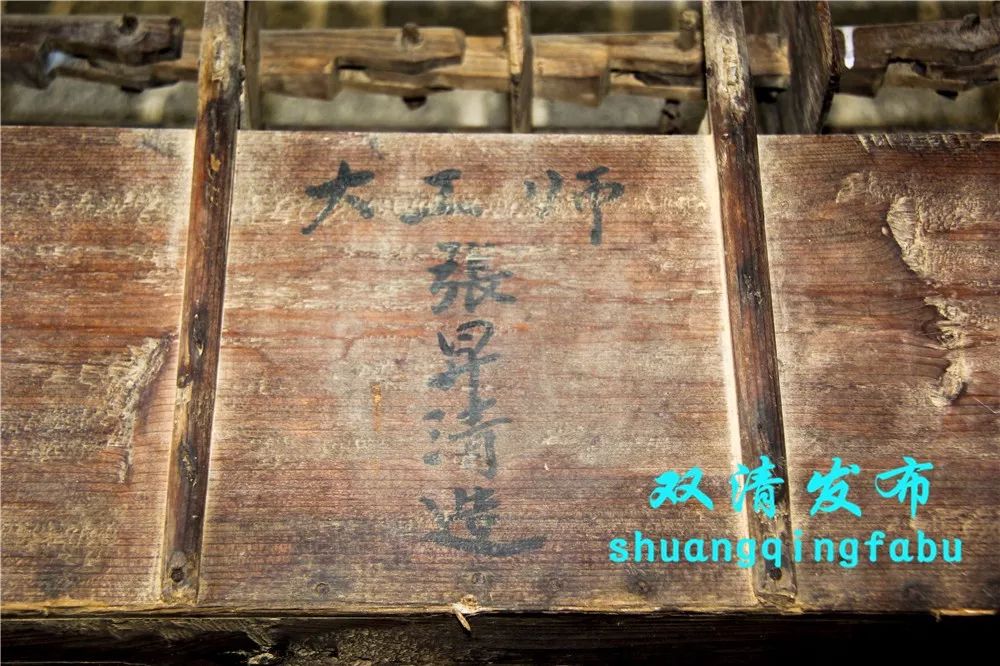 大工师
張昇清造
双清发布
shuangqingfabu